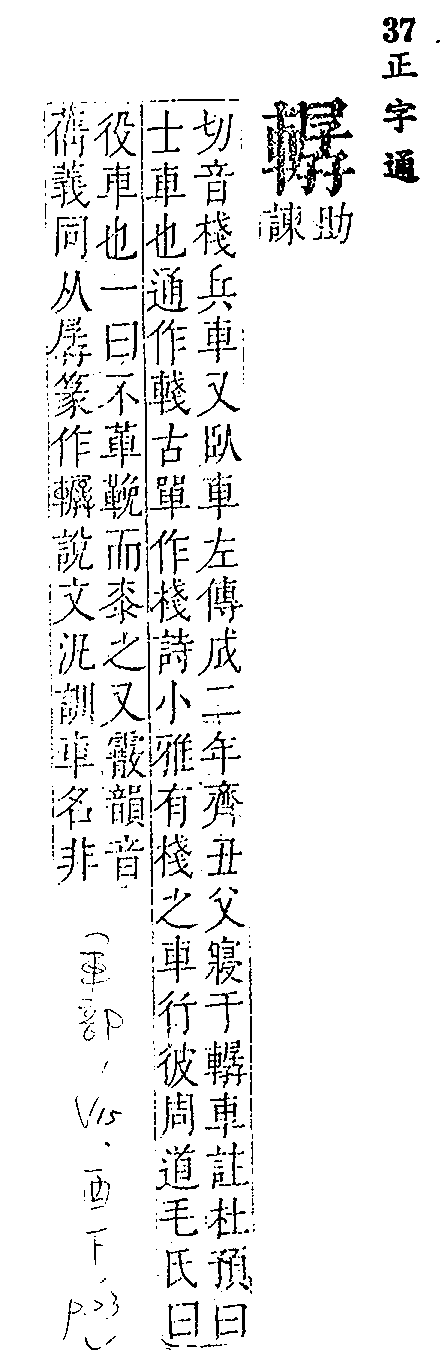 37正字通
轏
助諫
切音棧兵車又臥車左傳成二年齊丑父寢于轏車註杜預曰
士車也通作輚古單作棧詩小雅有棧之車行彼周道毛氏曰
役車也一曰不革鞔而桼之又霰韻音
義同从孱篆作轏說文汎訓車名非
(車部, V15.酉下, P.23)